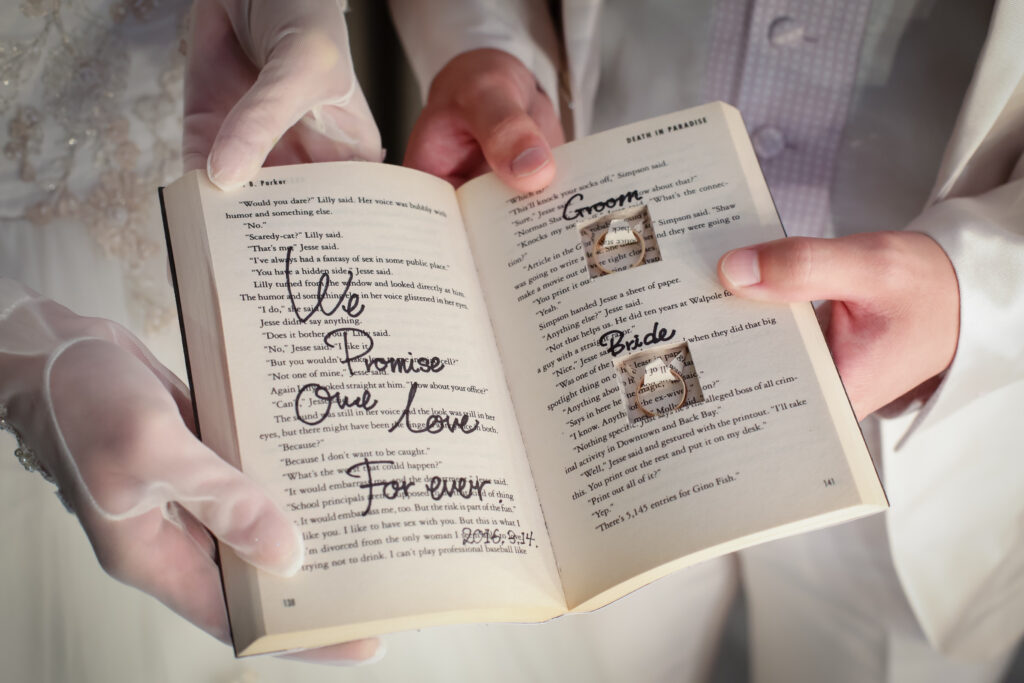 . B. Parker
"Would you dare?" Lilly said. Her voice was bubbly with
humor and something else.
"No."
"Scaredy-cat?" Lilly said.
"That's me," Jesse said.
"I've always had a fantasy of sex in some public place."
"You have a hidden side," Jesse said.
Lilly turned from the window and looked directly at him.
The humor and something in her voice glistened in her eyes.
"I do," she said.
Jesse didn't say anything.
"Does it bother you?" Lilly said.
"No," Jesse said. "I like it."
"But you wouldn't cell?"
"Not one of mine," Jesse said.
Again looked straight at him. "How about your office?"
"Can Jesse
The sound was still in her voice and the look was still in her
eyes, but there might have been in both.
"Because?"
"Because I don't want to be caught."
"What's the could happen?"
"It would embarrass me and the said.
"School principals supposed kind of thing
"It would embarrass me, too. But the risk is part of the fun."
like you. I like to have sex with you. But this is what I
I'm divorced from the only woman I
trying not to drink. I can't play professional baseball like
138
We
Promise
Our Love
For ever.
2016.3.14.
DEATH IN PARADISE
"Which is
"That'll knock your socks off," Simpson said.
"Sure," Jesse now about that?"
"Norman Sha "What's the connec-
"Knocks my so Simpson said. "Shaw
tion?"
"Article in the G and they were going to
was going to write a
make a movie out of
"You print it out
"Yeah."
Simpson handed Jesse a sheet of paper.
"Anything else?" Jesse said.
"Not that helps us. He did ten years at Walpole
guy with a straight
"Nice," Jesse when they did that big
"Was one of the
spotlight thing on
"Anything about
"Says in here he of the ex-wives on?"
"I know. Any
"Nothing specific. Just alleged boss of all crim-
inal activity in Downtown and Back Bay."
"Well," Jesse said and gestured with the printout. "I'll take
this. You print out the rest and put it on my desk."
"Print out all of it?"
"Yep."
"There's 5,145 entries for Gino Fish."
141
Groom
Bride